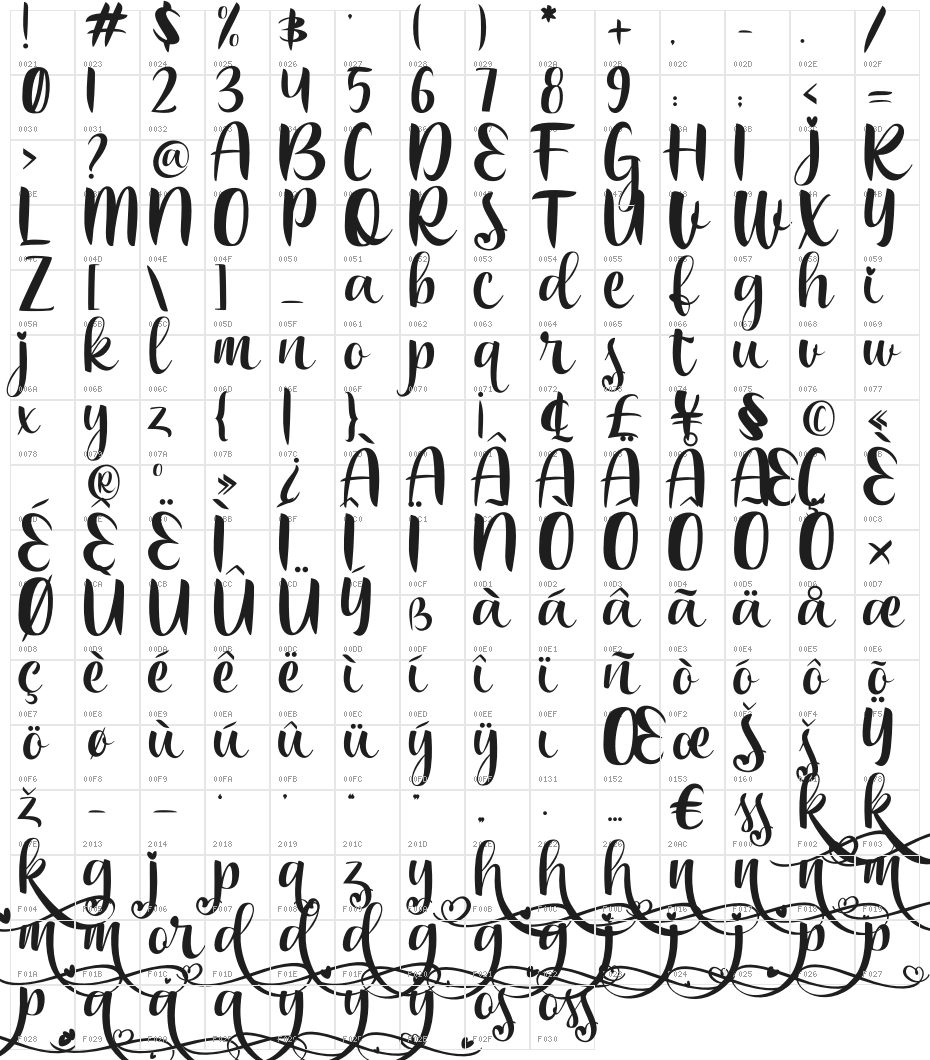 ! # $ % & ' ( ) * + , - . /
0021 0023 0024 0025 0026 0027 0028 0029 002A 002B 002C 002D 002E 002F
0 1 2 3 4 5 6 7 8 9 : ; < =
0030 0031 0032
> ? @ A B C D E F G H I J K
0047 0048 0049
L M N O P Q R S T U V W X Y
004C 004D 004E 004F 0050 0051 0052 0053 0054 0055 0056 0057 0058 0059
Z [ \ ] _ a b c d e f g h i
005A 005B 005C 005D 005F 0061 0062 0063 0064 0065 0066 0067 0068 0069
j k l m n o p q r s t u v w
006A 006B 006C 006D 006E 006F 0070 0071 0072 0073 0074 0075 0076 0077
x y z { | } ¡ ¢ £ ¥ § © «
0078 007A 007B 007C
® ° » ¿ À Á Â Ã Ä Å Æ Ç È
00BB 00BF 00C0 00C1 00C8
É Ê Ë Ì Í Î Ï Ñ Ò Ó Ô Õ Ö ×
00CA 00CB 00CC 00CD 00CE 00CF 00D1 00D2 00D3 00D4 00D5 00D6 00D7
Ø Ù Ú Û Ü Ý ß à á â ã ä å æ
00D8 00D9 00DA 00DB 00DC 00DD 00DF 00E0 00E1 00E2 00E3 00E4 00E5 00E6
ç è é ê ë ì í î ï ñ ò ó ô õ
00E7 00E8 00E9 00EA 00EB 00EC 00ED 00EE 00EF 00F1 00F2 00F3 00F4 00F5
ö ø ù ú û ü ý ÿ ı Œ œ Š š Ÿ
00F6 00F8 00F9 00FA 00FB 00FC 00FD 00FF 0131 0152 0153 0160 0161 0178
ž – — ‘ ’ “ ” „ · … € ss k k
017E 2013 2014 2018 2019 201C 201D 201E 2026 20AC F000 F002 F003
k g j p q z y h h h n n n m
F004 F005 F006 F007 F008 F009 F00A F00B F00C F00D F016 F017 F018 F019
m m or d d d g g g j j j p p
F01A F01B F01C F01D F01E F01F F020 F021 F022 F023 F024 F025 F026 F027
p q q q y y y os oss
F028 F029 F02A F02B F02C F02D F02E F02F F030